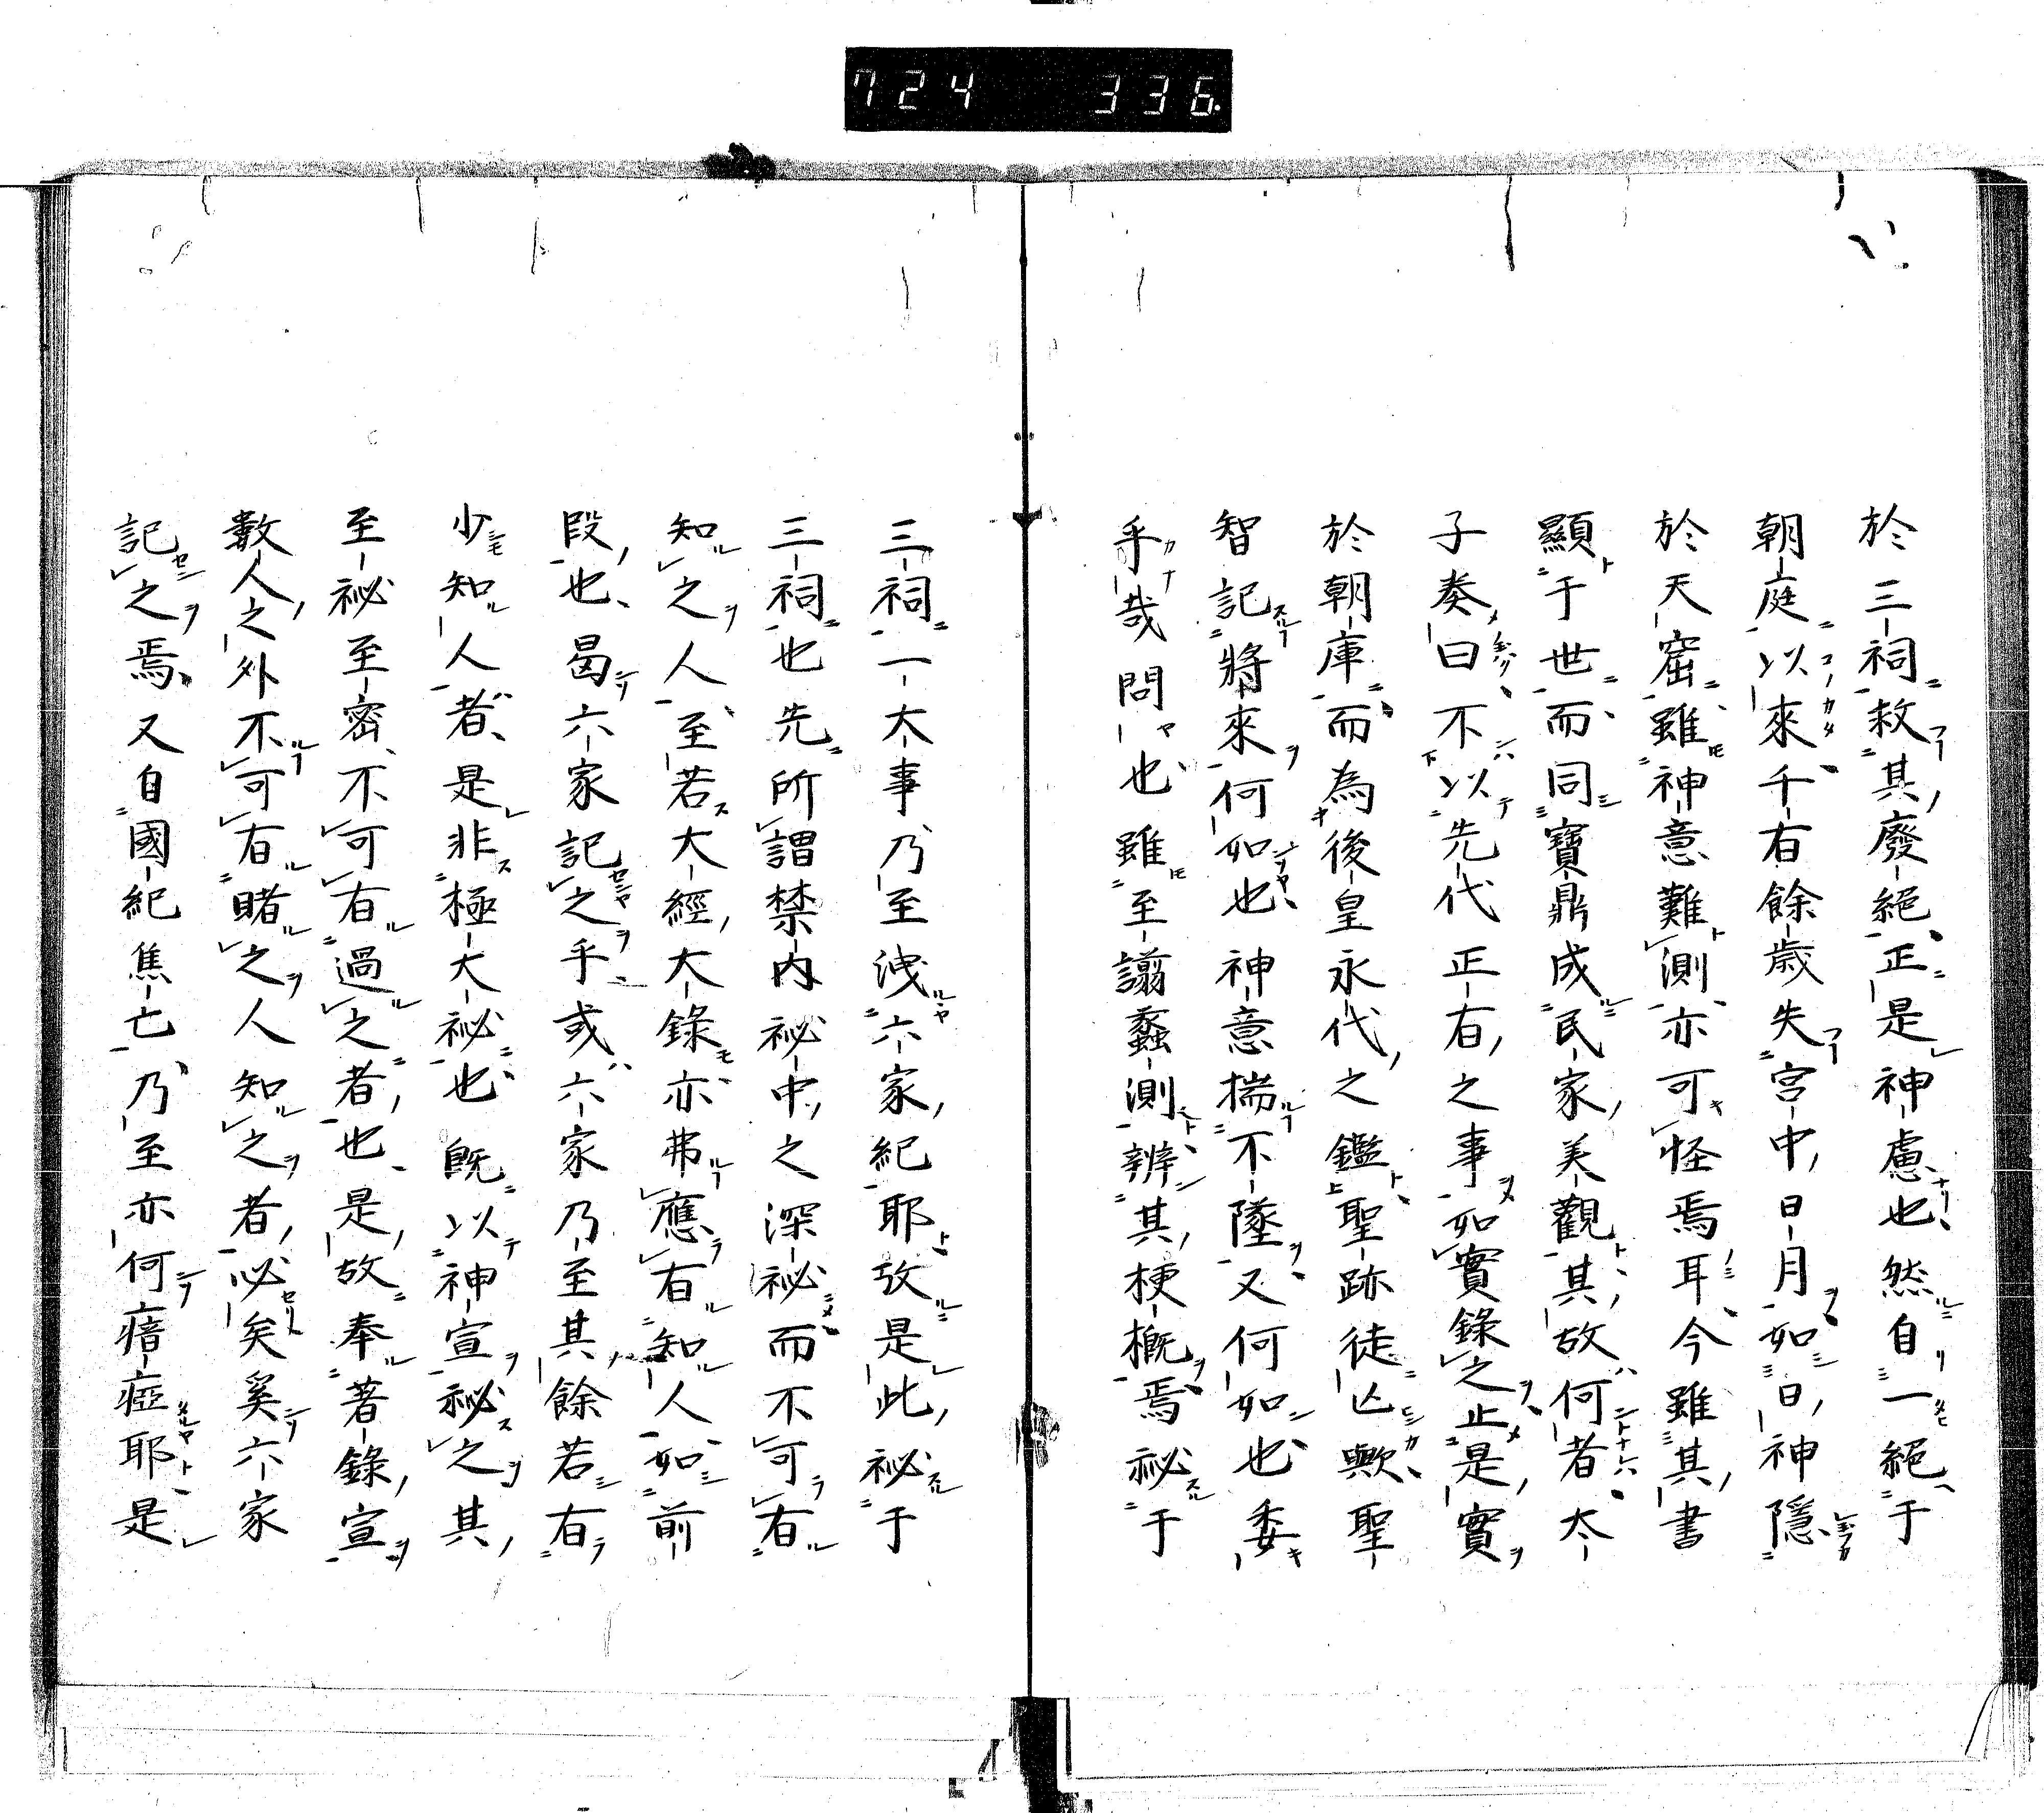 724 336.
於三祠救其廢絕正是神慮也然自一絕于
朝庭以來千有餘歳失宮中日月如日神隱
於天窟雖神意難測亦可怪焉耳今雖其書
顯于世而同寶鼎成民家美觀其故何者太
子奏曰不以先代正有之事如實錄之止是實
於朝庫而為後皇永代之鑑聖跡徒亾歟聖
智記將來何如也神意揣不墜又何如也委
乎哉問也雖至譾蠡測辨其梗概焉祕于
三祠一大事乃至洩六家紀耶故是此祕于
三祠也先所謂禁内祕中之深祕而不可有
知之人至若大經大錄亦弗應有知人如前
段也曷六家記之乎或六家乃至其餘若有
少知人者是非極大祕也既以神宣祕之其
至祕至密不可有過之者也是故奉著錄宣
數人之外不可有睹之人知之者必矣奚六家
記之焉又自國紀焦亡乃至亦何瘖瘂耶是